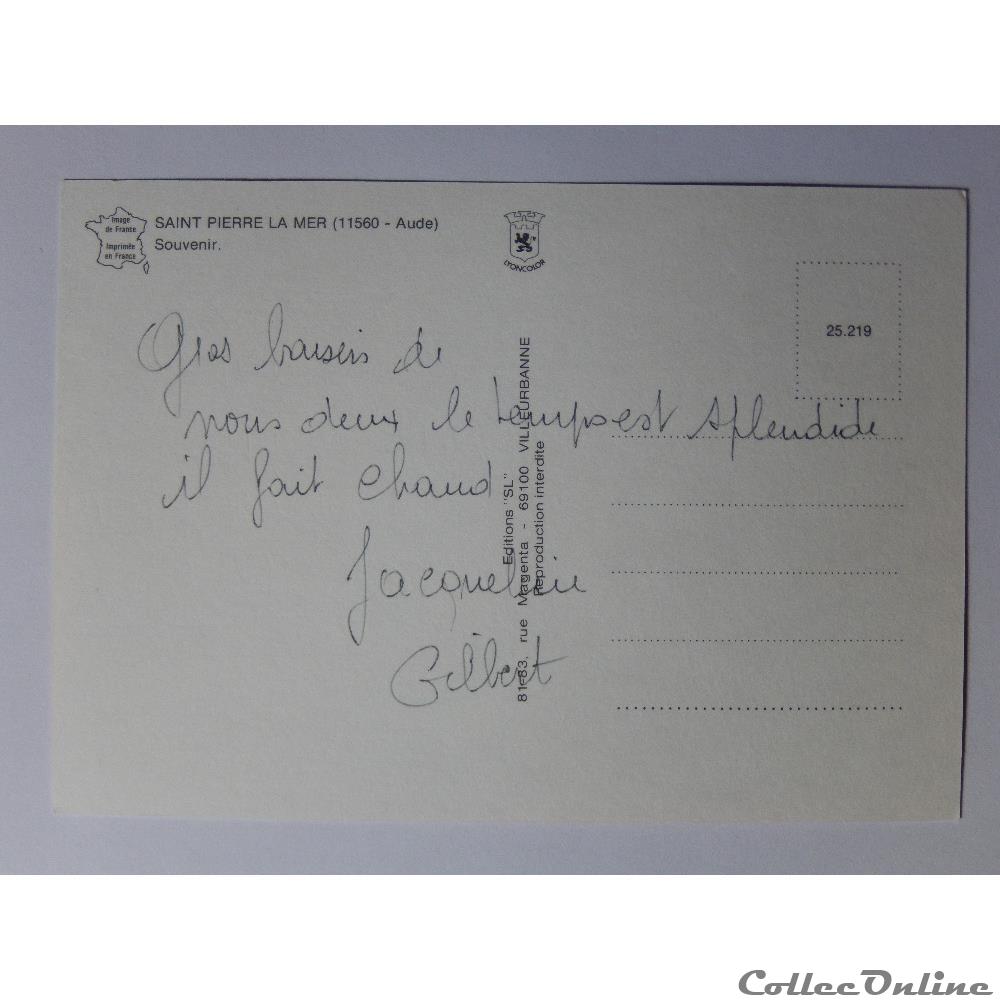 Image
de France
Imprimée
en France
SAINT PIERRE LA MER (11560 - Aude)
Souvenir.
LYONCOLOR
25.219
Gros baisers de
nous deux le temps est splendide
il fait chaud
Jacqueline
Gilbert
Editions "SL"
81-83, rue Magenta - 69100 VILLEURBANNE
Reproduction interdite
CollecOnline